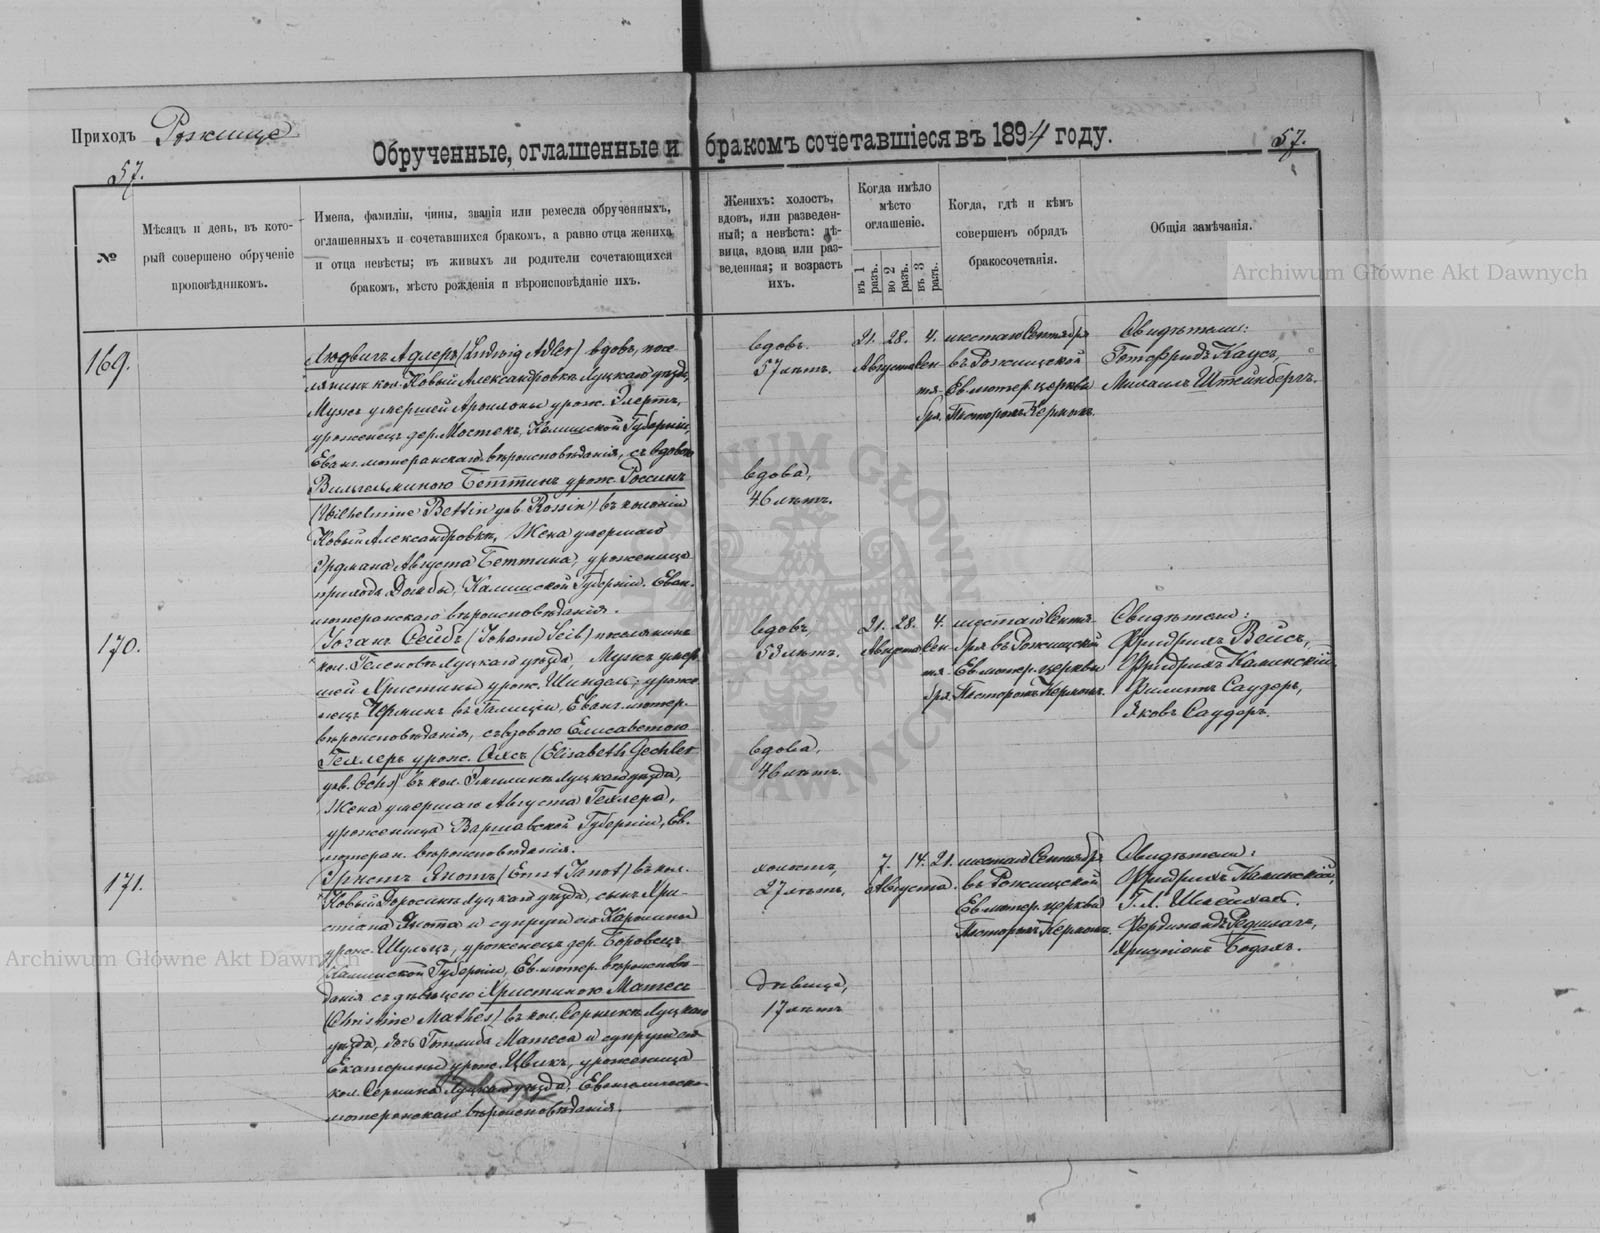 Приходъ Рожище
Обрученные, оглашенные и бракомъ сочетавшіеся въ 1894 году.
57.
57.
№
Мѣсяцъ и день, въ кото-
рый совершено обрученіе
проповѣдникомъ.
Имена, фамиліи, чины, званія или ремесла обрученныхъ,
оглашенныхъ и сочетавшихся бракомъ, а равно отца жениха
и отца невѣсты; въ живыхъ ли родители сочетающихся
бракомъ, мѣсто рожденія и вѣроисповѣданіе ихъ.
Женихъ: холостъ,
вдовъ, или разведен-
ный; а невѣста: дѣ-
вица, вдова или раз-
веденная; и возрастъ
ихъ.
Когда имѣло
мѣсто
оглашеніе.
въ 1 разъ.
во 2 разъ.
въ 3 разъ.
Когда, гдѣ и кѣмъ
совершенъ обрядъ
бракосочетанія.
Общія замѣчанія.
Archiwum Główne Akt Dawnych
169.
Людвигъ Адлеръ (Ludwig Adler) вдовъ, посе-
лянинъ кол. Новый Александровка Луцкаго уѣзда,
Мужъ умершей урож. Элертъ,
уроженецъ дер. Мостекъ, Калишской Губерніи,
Еванг. лютеранскаго вѣроисповѣданія, съ вдовою
Вильгельминою Беттинъ урож. Россинъ
(Wilhelmine Bettin geb. Rossin) въ колоніи
Новый Александровкѣ, Жена умершаго
Эрдмана Августа Беттина, уроженица
приходъ Домбы, Калишской Губерніи. Еван.
лютеранскаго вѣроисповѣданія.
вдовъ.
57 лѣтъ.
вдова,
46 лѣтъ.
21. 28. 4.
Августа Сен-
тя-
бря.
шестаго Сентября
въ Рожищской
Ев. лютер. церкви
Пасторомъ Керномъ.
Свидѣтели:
Готфридъ Каусъ,
Михаилъ Штейнбергъ.
170.
Іоганъ Сейбъ (Johann Seib) поселянинъ
кол. Геленовъ Луцкаго уѣзда, Мужъ умер-
шей Христины урож. Шиндель, уроже-
нецъ въ Галиціи, Еванг. лютер.
вѣроисповѣданія, съ вдовою Елисаветою
Гехлеръ урож. Охсъ (Elisabeth Gechler
geb. Ochs) въ кол. Эмилинъ Луцкаго уѣзда,
Жена умершаго Августа Гехлера,
уроженица Варшавской Губерніи, Ев.
лютеран. вѣроисповѣданія.
вдовъ,
53 лѣтъ.
вдова,
46 лѣтъ.
21. 28. 4.
Августа Сен-
тя-
бря.
шестаго Сентя-
бря въ Рожищской
Ев. лютер. церкви
Пасторомъ Керномъ.
Свидѣтели:
Фридрихъ Вейсъ,
Фридрихъ Каминскій,
Филиппъ Саудеръ,
Яковъ Саудеръ.
171.
Эрнстъ Янотъ (Ernst Janot) въ кол.
Новый Доросинъ Луцкаго уѣзда, сынъ Хри-
стіана Янота и супруги его Каролины
урож. Шульцъ, уроженецъ дер. Боровецъ
Калишской Губерніи, Ев. лютер. вѣроисповѣ-
данія съ дѣвицею Христиною Матесъ
(Christine Mathes) въ кол. Луцкаго
уѣзда, дочь Готлиба Матеса и супруги его
Екатерины урож. Цвикъ, уроженица
кол. Луцкаго уѣзда, Евангелическо-
лютеранскаго вѣроисповѣданія.
холостъ,
27 лѣтъ,
дѣвица,
17 лѣтъ
7. 14. 21.
Августа
шестаго Сентября
въ Рожищской
Ев. лютер. церкви
Пасторомъ Керномъ.
Свидѣтели:
Фридрихъ Каминскій,
Фердинандъ
Христіанъ
Archiwum Główne Akt Dawnych